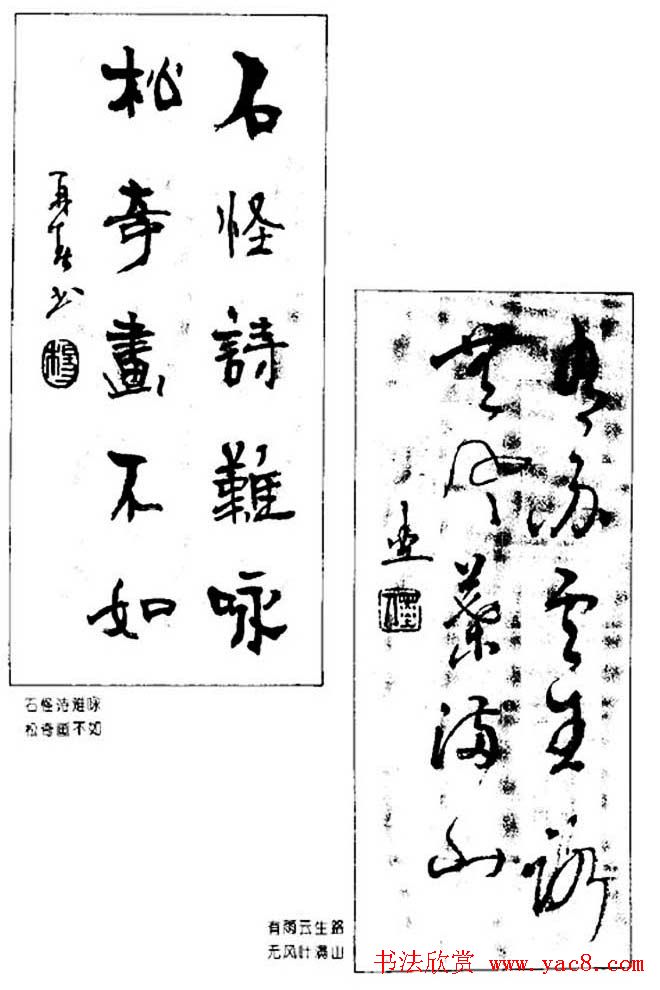 石怪詩難咏
松奇畫不如
石怪诗难咏
松奇画不如
有雨云生路
無风葉满山
有雨云生路
无风叶满山
书法欣赏 www.yac8.com